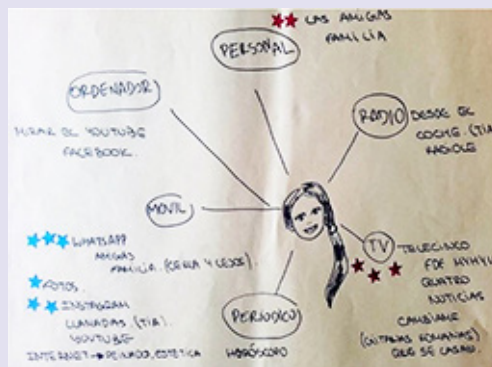 LAS AMIGAS
FAMILIA
PERSONAL
ORDENADOR
MIRAR EL YOUTUBE
FACEBOOK.
RADIO
DESDE EL
COCHE. (TIA
RADIOLE
MOVIL
WHATSAPP
AMIGAS
FAMILIA. (CERCA Y LEJOS).
FOTOS.
INSTAGRAM
LLAMADAS. (TIA).
YOUTUBE
INTERNET → PEINADOS, ESTETICA
TV
TELECINCO
FDF
QUATRO
NOTICIAS
CAMBIAME
(GITANAS RUMANAS)
QUE SE CASAN.
PERIODICO
HORÓSCOPO